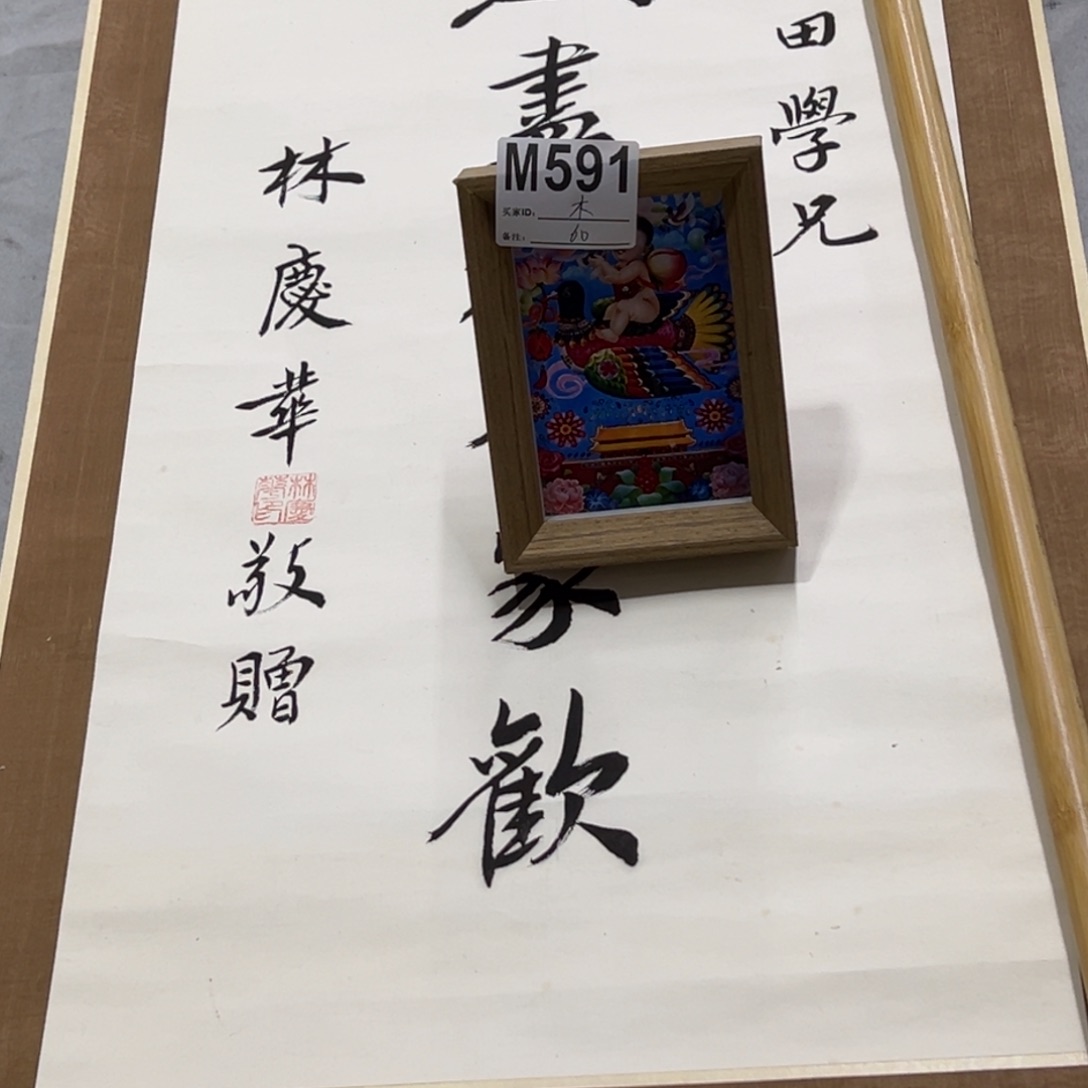 田學兄
畫
家歡
林慶華敬贈
M591
买家ID: 木
备注: 60